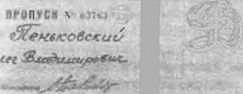 ПРОПУСК № 03763
Пеньковский
лег Владимирович